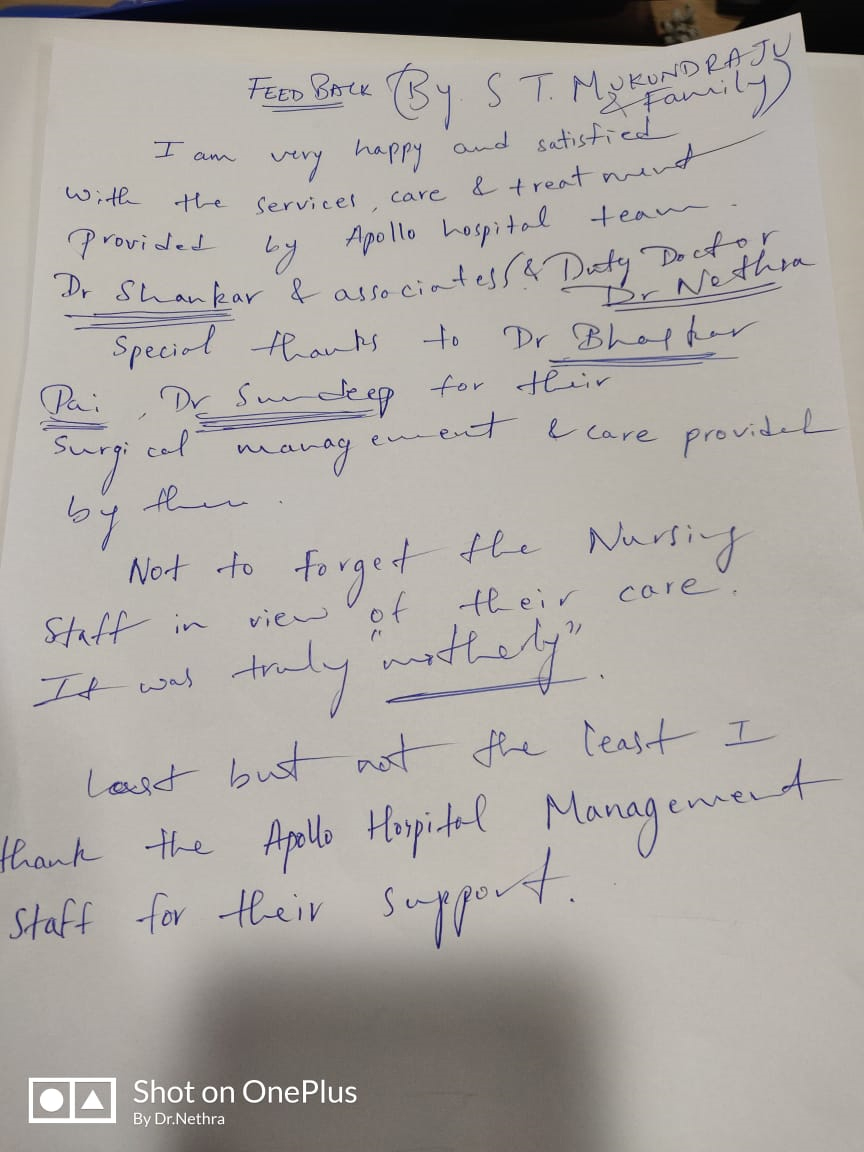 FEED BACK (By S T. MUKUNDRAJU
& Family)
I am very happy and satisfied
with the services, care & treatment
Provided by Apollo hospital team.
Dr Shankar & associatess (& Duty Doctor
Dr Nethra
Special thanks to Dr Bhaskar
Pai, Dr Sundeep for their
Surgical management & care provided
by them.
Not to forget the Nursing
Staff in view of their care.
It was truly "motherly".
Last but not the least I
thank the Apollo Hospital Management
Staff for their support.
Shot on OnePlus
By Dr.Nethra